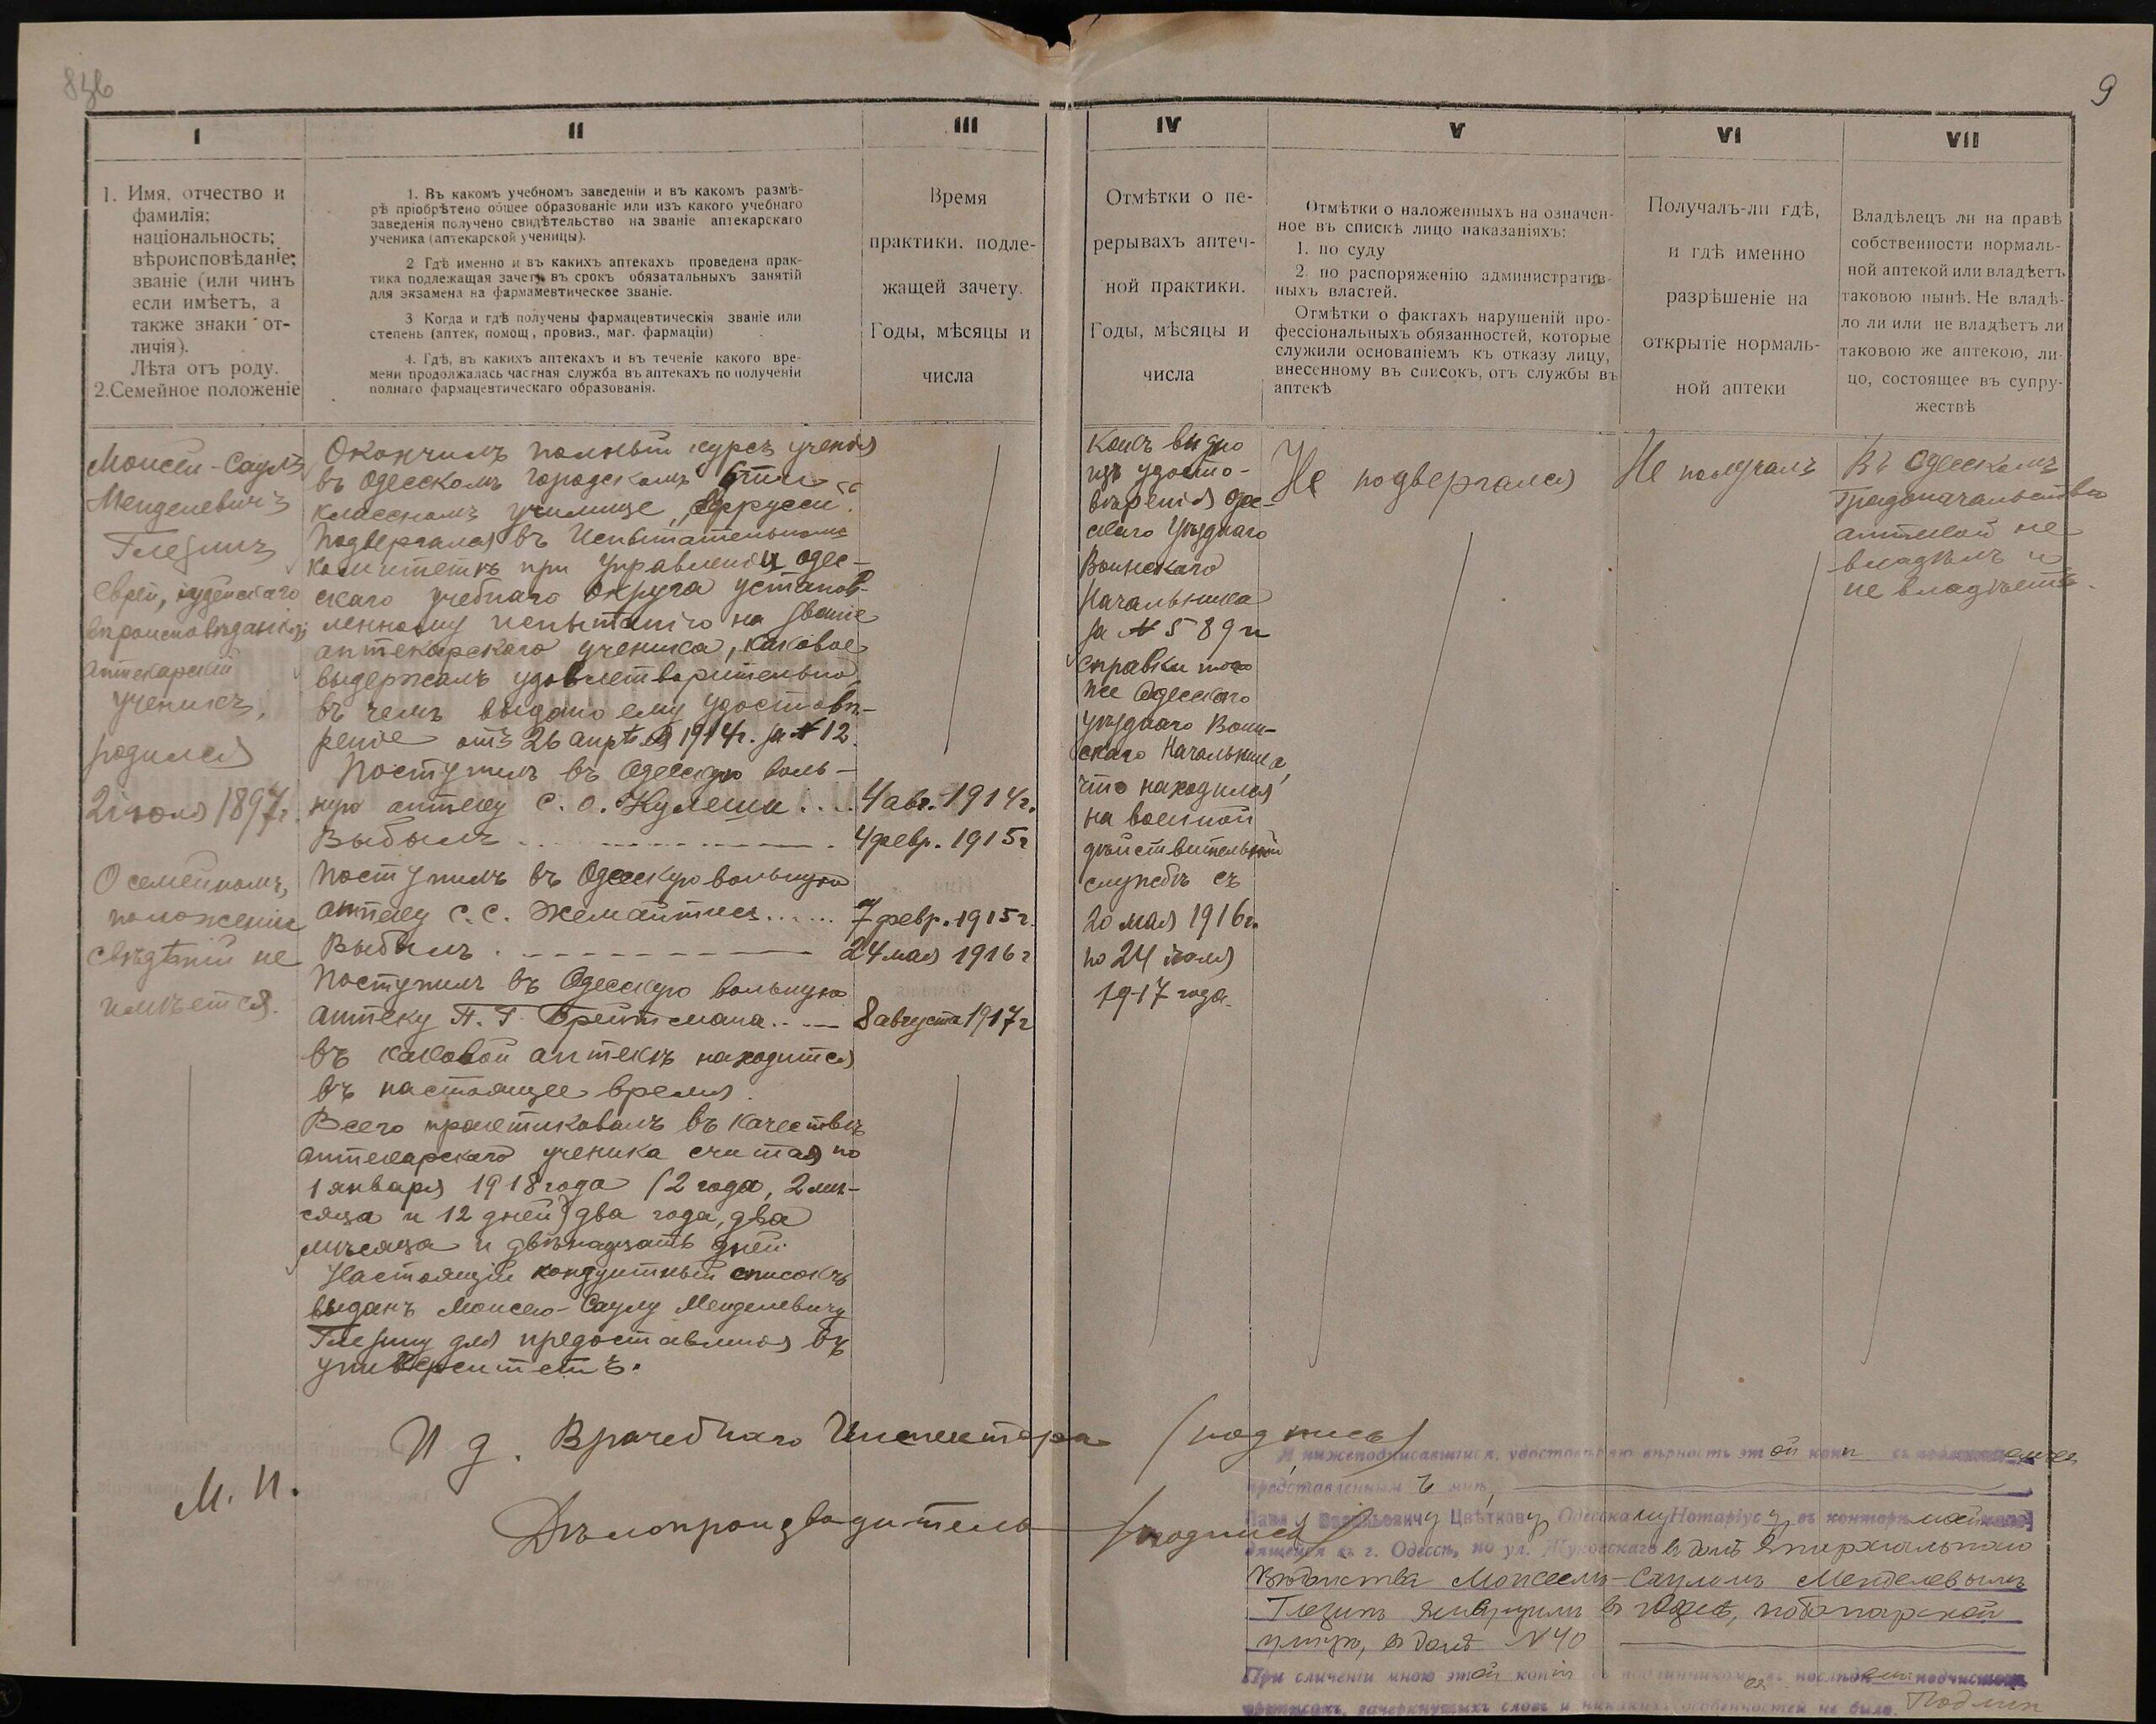 836
9
I
II
III
IV
V
VI
VII
1. Имя, отчество и
фамилія;
національность;
вѣроисповѣданіе;
званіе (или чинъ
если имѣетъ, а
также знаки от-
личія).
Лѣта отъ роду.
2. Семейное положеніе
1. Въ какомъ учебномъ заведеніи и въ какомъ размѣ-
рѣ пріобрѣтено общее образованіе или изъ какого учебнаго
заведенія получено свидѣтельство на званіе аптекарскаго
ученика (аптекарской ученицы).
2 Гдѣ именно и въ какихъ аптекахъ проведена прак-
тика подлежащая зачету въ срокъ обязатальныхъ занятій
для экзамена на фармамевтическое званіе.
3 Когда и гдѣ получены фармацевтическія званіе или
степень (аптек, помощ, провиз., маг. фармаціи)
4. Гдѣ, въ какихъ аптекахъ и въ теченіе какого вре-
мени продолжалась частная служба въ аптекахъ по полученіи
полнаго фармацевтическаго образованія.
Время
практики. подле-
жащей зачету.
Годы, мѣсяцы и
числа
Отмѣтки о пе-
рерывахъ аптеч-
ной практики.
Годы, мѣсяцы и
числа
Отмѣтки о наложенныхъ на означен-
ное въ спискѣ лицо наказаніяхъ:
1. по суду
2. по распоряженію административ-
ныхъ властей.
Отмѣтки о фактахъ нарушеній про-
фессіональныхъ обязанностей, которые
служили основаніемъ къ отказу лицу,
внесенному въ списокъ, отъ службы въ
аптекѣ
Получалъ-ли гдѣ,
и гдѣ именно
разрѣшеніе на
открытіе нормаль-
ной аптеки
Владѣлецъ ли на правѣ
собственности нормаль-
ной аптекой или владѣетъ
таковою нынѣ. Не владѣ-
ло ли или не владѣетъ ли
таковою же аптекою, ли-
цо, состоящее въ супру-
жествѣ
Моисей-Саулъ
Менделевичъ
Глезинъ
еврей, іудейскаго
вѣроисповѣданія,
аптекарскій
ученикъ,
родился
2 іюля 1897 г.
О семейномъ
положеніи
свѣдѣній не
имѣется.
Окончилъ полный курсъ ученія
въ Одесскомъ Городскомъ 6ти
классномъ училище „Ефрусси“.
Подвергался въ Испытательномъ
комитетѣ при Управленіи Одес-
скаго учебнаго Округа установ-
ленному испытанію на званіе
аптекарскаго ученика, каковое
выдержалъ удовлетворительно,
въ чемъ выдано ему удостовѣ-
реніе отъ 26 апрѣля 1914 г. за № 12.
Поступилъ въ Одесскую воль-
ную аптеку С. О. Кулеши .... 4 авг. 1914 г.
Выбылъ . . . 4 февр. 1915 г
Поступилъ въ Одесскую вольную
аптеку С. С. Жемайтиса ...... 7 февр. 1915 г.
Выбылъ . . . 24 мая 1916 г
Поступилъ въ Одесскую вольную
аптеку П. Г. Брейтмана .... 8 августа 1917 г
въ каковой аптекѣ находится
въ настоящее время.
Всего практиковалъ въ качествѣ
аптекарскаго ученика считая по
1 января 1918 года (2 года, 2 мѣ-
сяца и 12 дней) два года, два
мѣсяца и двѣнадцать дней.
Настоящій кондуитный списокъ
выданъ Моисею-Саулу Менделевичу
Глезину для предоставленія въ
университетъ.
Какъ видно
изъ удосто-
вѣренія Одес-
скаго Уѣзднаго
Воинскаго
Начальника
за № 589 и
справки того
же Одесскаго
уѣзднаго Воин-
скаго Начальника,
что находился
на военной
дѣйствительной
службѣ съ
20 мая 1916 г.
по 24 іюля
1917 года.
Не подвергался
Не получалъ
Въ Одесскомъ
Градоначальствѣ
аптекой не
владѣлъ и
не владѣетъ.
И д. Врачебнаго Инспектора (подпись)
М. П.
Дѣлопроизводитель (подпись)
Я нижеподписавшійся, удостовѣряю вѣрность этой копіи съ
представленнымъ мнѣ,
Цвѣткову, Одесскому Нотаріусу, въ конторѣ моей, нахо-
дящейся въ г. Одессѣ, по ул. Жуковскаго въ домѣ Епархіальнаго
Вѣдомства Моисеемъ-Сауломъ Менделевымъ
Глезинъ живущимъ въ Одессѣ,
въ домѣ № 40
При сличеніи мною этой копіи съ подлинникомъ въ послѣднемъ подчистокъ
приписокъ, зачеркнутыхъ словъ и никакихъ особенностей не было.